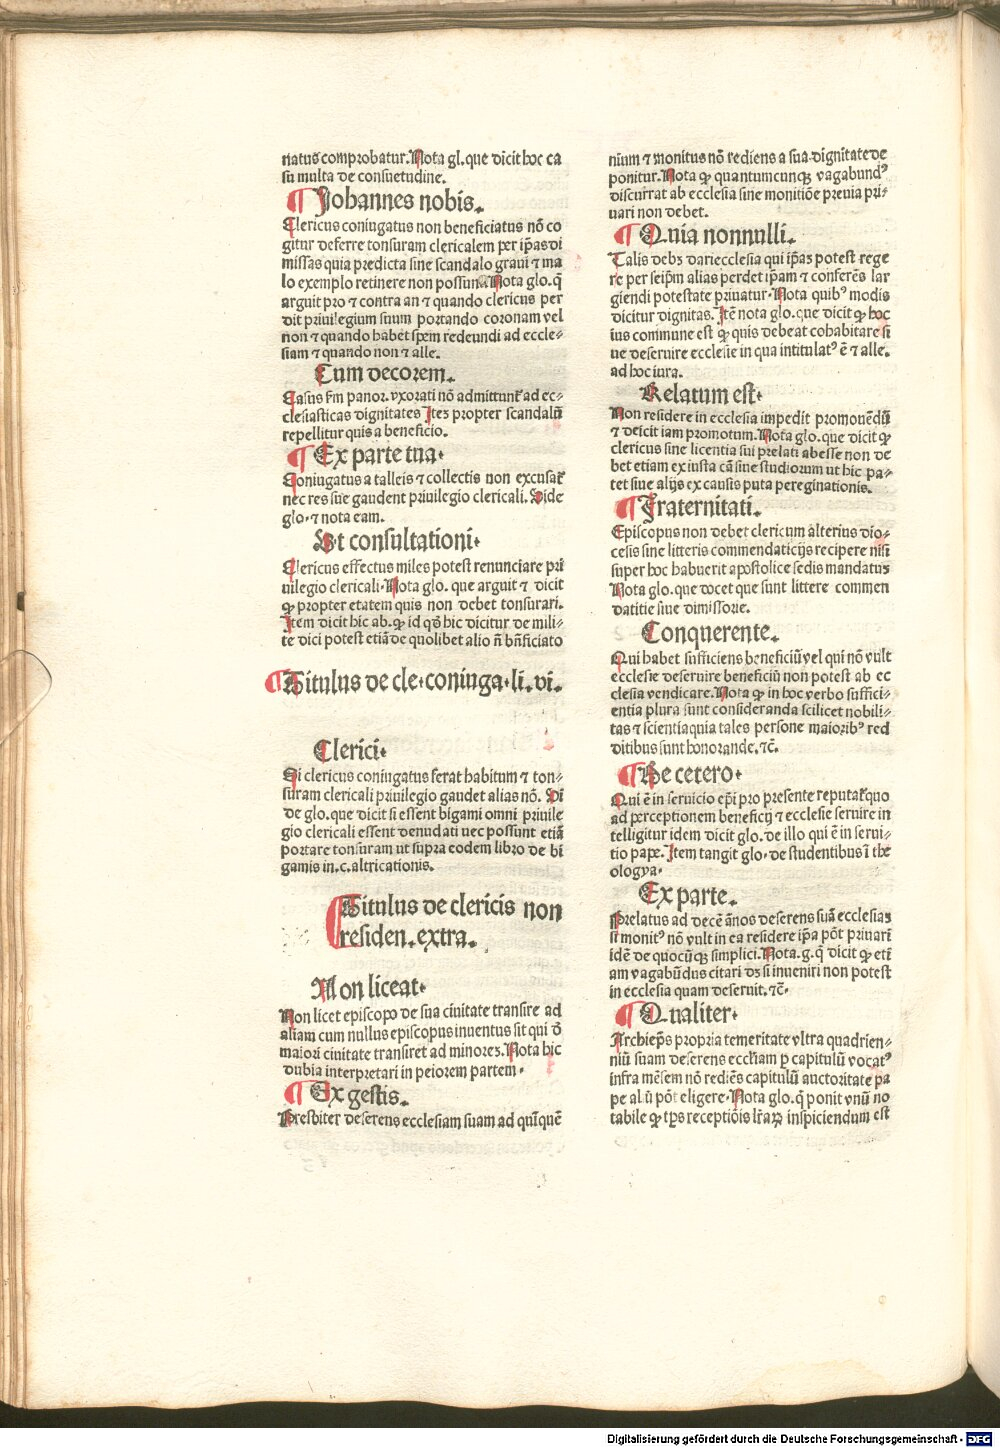 natus comprobatur. Nota gl. que dicit hoc ca
su multa de consuetudine.
¶ Johannes nobis.
Clericus coniugatus non beneficiatus nō co
gitur deferre tonsuram clericalem per ip̄as di
missas quia predicta sine scandalo graui ⁊ ma
lo exemplo retinere non possunt. Nota glo. q̄
arguit pro ⁊ contra an ⁊ quando clericus per
dit priuilegium suum portando coronam vel
non ⁊ quando habet spem redeundi ad eccle⸗
siam ⁊ quando non ⁊ alle.
Cum decorem.
Casus f̄m panor. vxorati nō admittunt᷑ ad ec⸗
clesiasticas dignitates Ites propter scandalū
repellitur quis a beneficio.
¶ Ex parte tua.
Coniugatus a talleis ⁊ collectis non excusat᷑
nec res sue gaudent priuilegio clericali. Vide
glo. ⁊ nota eam.
Ut consultationi.
Clericus effectus miles potest renunciare pri
uilegio clericali. Nota glo. que arguit ⁊ dicit
ꝙ propter etatem quis non debet tonsurari.
Item dicit hic ab. ꝙ id qd̄ hic dicitur de mili⸗
te dici potest etiā de quolibet alio n̄ bn̄ficiato
¶ Titulus de cle. coniuga. li. vi.
Clerici.
Si clericus coniugatus ferat habitum ⁊ ton⸗
suram clericali priuilegio gaudet alias nō. Vi
de glo. que dicit si essent bigami omni priuile
gio clericali essent denudati nec possunt etiā
portare tonsuram ut supra eodem libro de bi
gamis in. c. altricationis.
Titulus de clericis non
residen. extra.
Non liceat.
Non licet episcopo de sua ciuitate transire ad
aliam cum nullus episcopus inuentus sit qui d̄
maiori ciuitate transiret ad minores. Nota hic
dubia interpretari in peiorem partem.
¶ Ex gestis.
Presbiter deserens ecclesiam suam ad quīquē
nium ⁊ monitus nō rediens a sua dignitate de
ponitur. Nota ꝙ quantumcunqꝫ vagabundꝰ
discurrat ab ecclesia sine monitiōe preuia pri⸗
uari non debet.
¶ Quia nonnulli.
Talis debꝫ dari ecclesia qui ip̄as potest rege
re per seip̄m alias perdet ip̄am ⁊ conferēs lar
giendi potestate priuatur. Nota quibꝰ modis
dicitur dignitas. Itē nota glo. que dicit ꝙ hoc
ius commune est ꝙ quis debeat cohabitare si
ue deseruire ecclesie in qua intitulatꝰ ē ⁊ alle.
ad hoc iura.
Relatum est.
Non residere in ecclesia impedit promouēdū
⁊ deicit iam promotum. Nota glo. que dicit ꝙ
clericus sine licentia sui prelati abesse non de
bet etiam ex iusta cā siue studiorum ut hic pa⸗
tet siue alijs ex causis puta peregrinationis.
¶ Fraternitati.
Episcopus non debet clericum alterius dio⸗
cesis sine litteris commendaticijs recipere nisi
super hoc habuerit apostolice sedis mandatus
Nota glo. que docet que sunt littere commen
datitie siue dimissorie.
Conquerente.
Qui habet sufficiens beneficiū vel qui nō vult
ecclesie deseruire beneficiū non potest ab ec
clesia vendicare. Nota ꝙ in hoc verbo suffici⸗
entia plura sunt consideranda scilicet nobili⸗
tas ⁊ scientia quia tales persone maioribꝰ red
ditibus sunt honorande. ⁊c̄.
¶ De cetero.
Qui ē in seruicio ep̄i pro presente reputat᷑ quo
ad perceptionem beneficij ⁊ ecclesie seruire in
telligitur idem dicit glo. de illo qui ē in serui⸗
tio pape. Item tangit glo. de studentibus ī the
ologya.
Ex parte.
Prelatus ad decē ānos deserens suā ecclesias
si monitꝰ nō vult in ea residere ip̄a pōt priuari
idē de quocūqꝫ simplici. Nota. g. q̄ dicit ꝙ eti
am vagabūdus citari dꝫ si inueniri non potest
in ecclesia quam deseruit. ⁊c̄.
¶ Qualiter.
Archiep̄s propria temeritate vltra quadrien⸗
niū suam deserens eccl̄iam p̄ capitulū vocatꝰ
infra mēsem nō rediēs capitulū auctoritate pa
pe aliū pōt eligere. Nota glo. q̄ ponit vnū no
tabile ꝙ tp̄s receptiōis lr̄aꝝ inspiciendum est
Digitalisierung gefördert durch die Deutsche Forschungsgemeinschaft - DFG